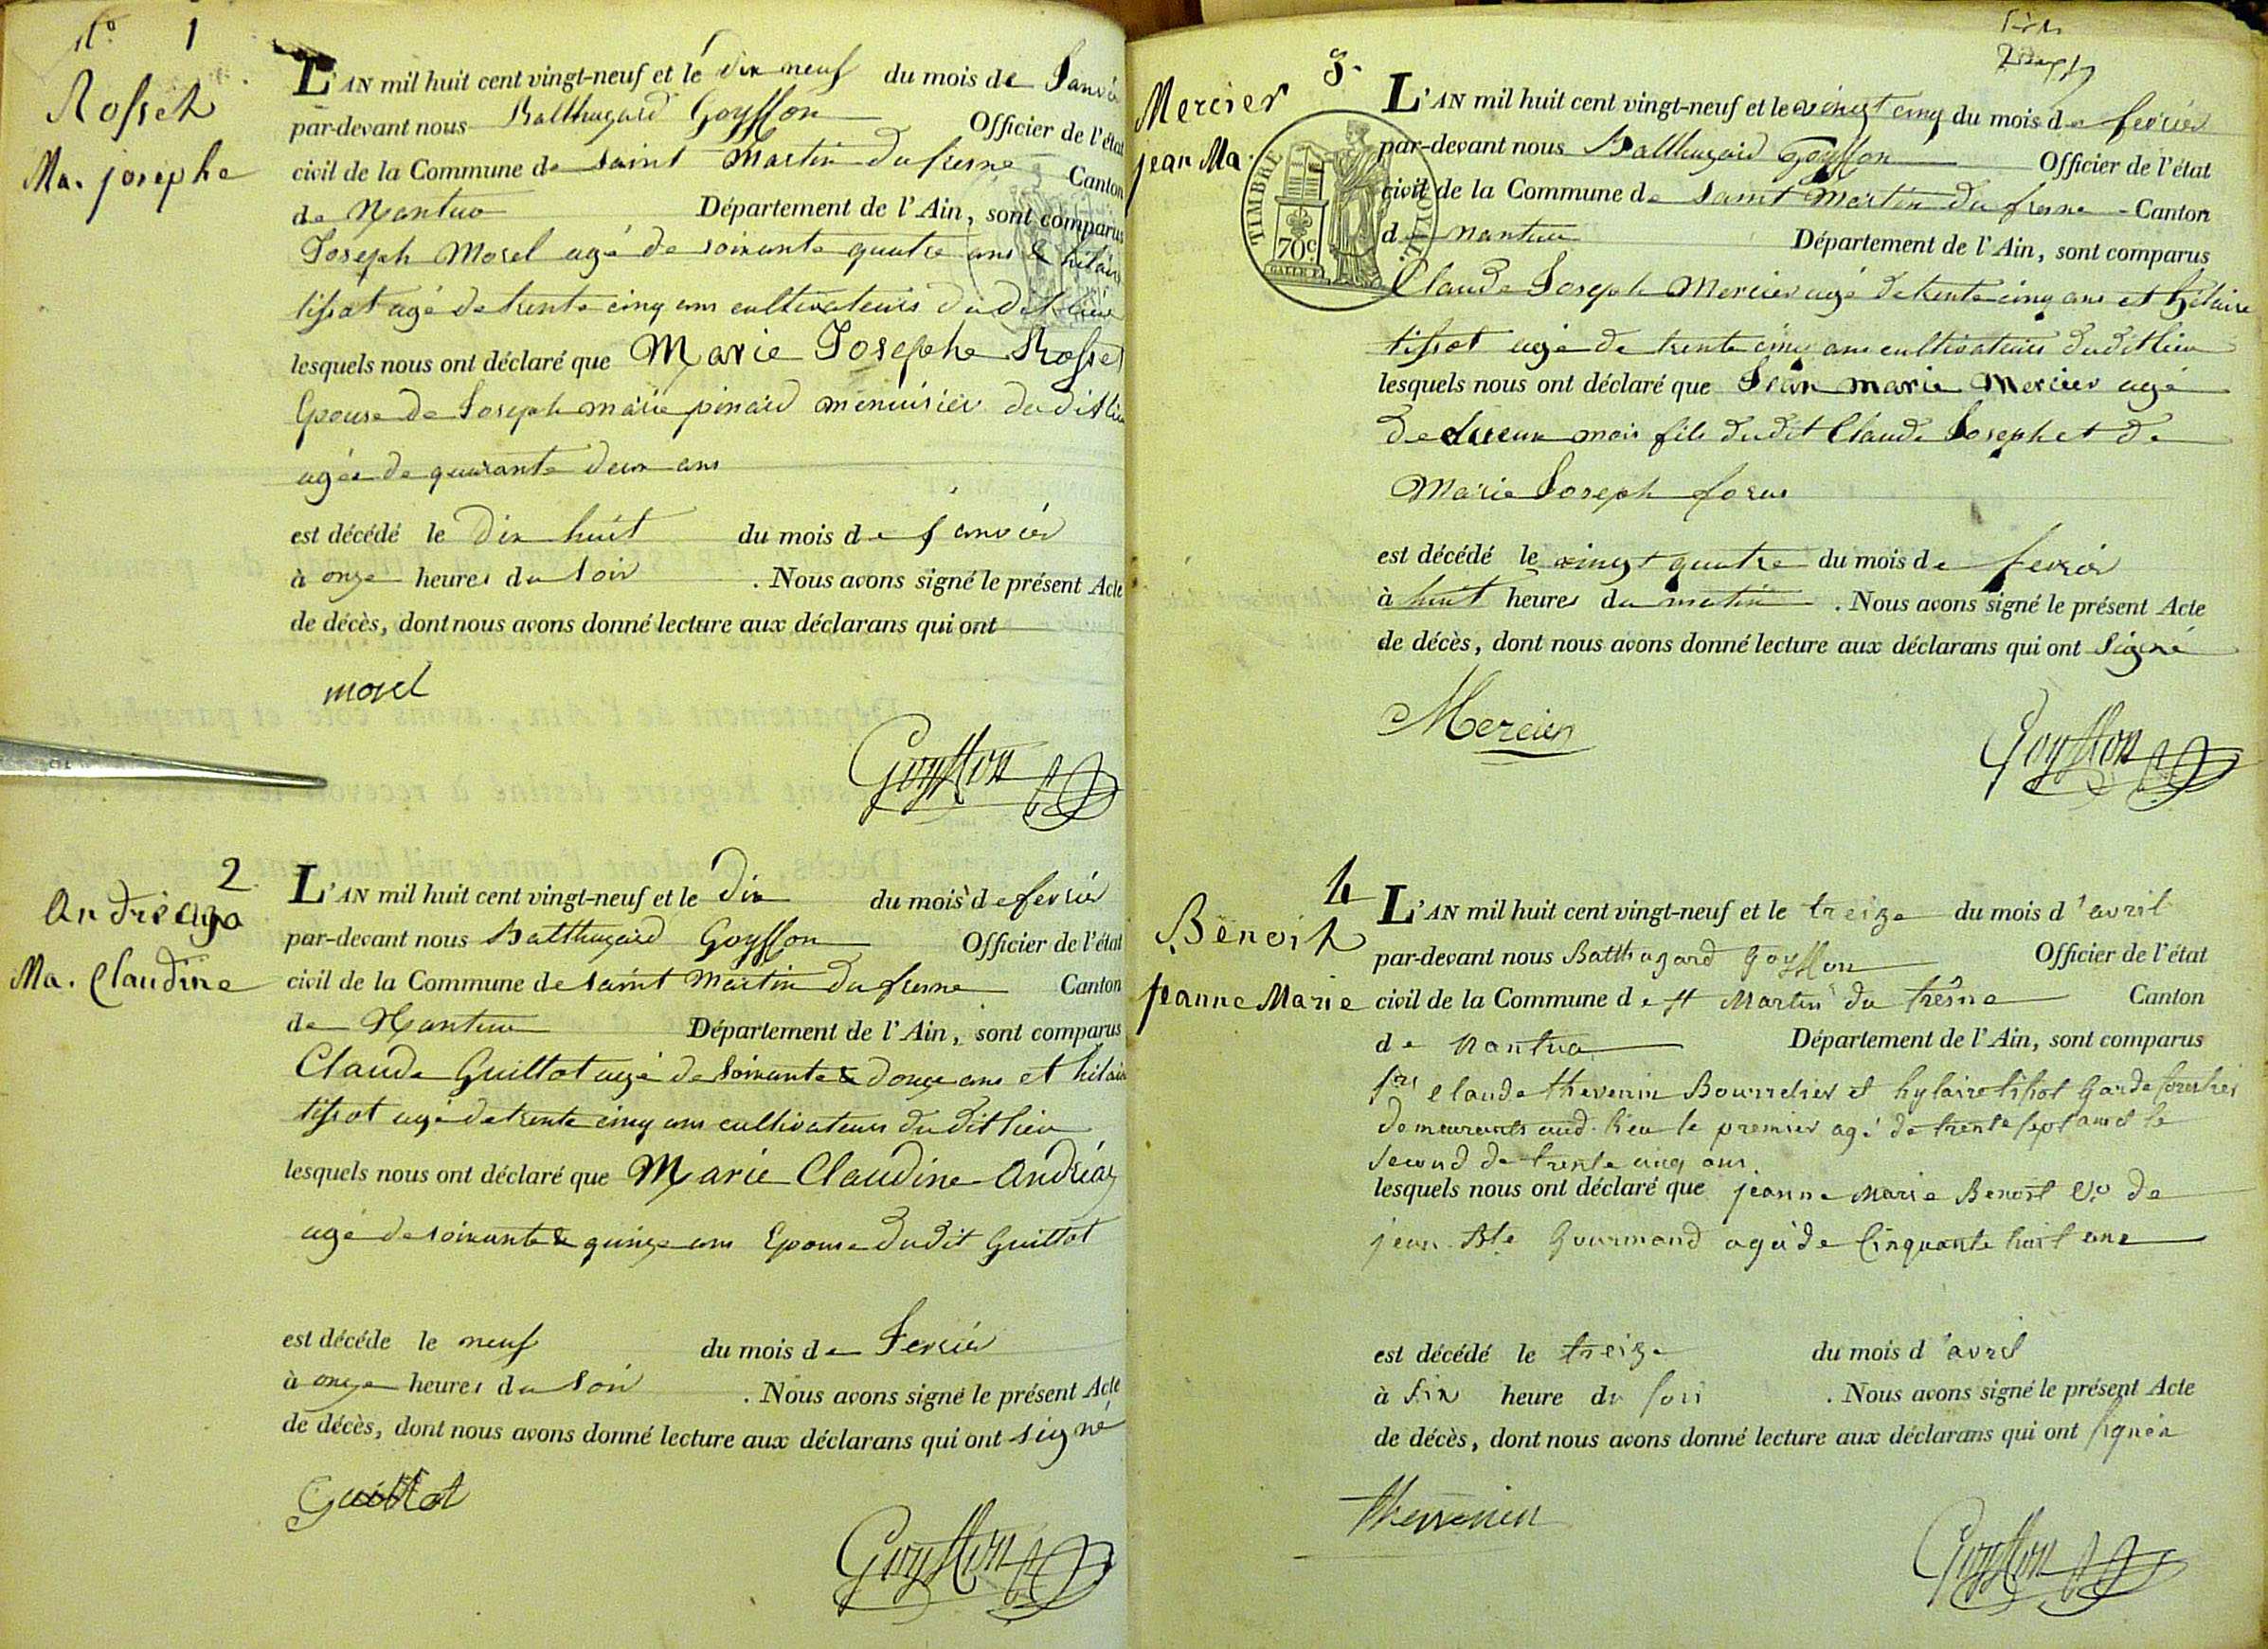 N.° 1
Rosset
Ma. josephe
L'AN mil huit cent vingt-neuf et le dix neuf du mois de Janvier
par-devant nous Balthazard Goyffon Officier de l'état
civil de la Commune de saint Martin du fresne Canton
de Nantua Département de l'Ain, sont comparus
Joseph Morel agé de soixante quatre ans & hilaire
tissot agé de trente cinq ans cultivateurs dudit lieu
lesquels nous ont déclaré que Marie Josephe Rosset
Epouse de Joseph marie pinard menuisier dudit lieu
agée de quarante deux ans
est décédé le dix huit du mois de janvier
à onze heures du soir . Nous avons signé le présent Acte
de décès, dont nous avons donné lecture aux déclarans qui ont
morel
Goyffon
2
Andréaza
Ma. Claudine
L'AN mil huit cent vingt-neuf et le dix du mois de fevrier
par-devant nous Balthazard Goyffon Officier de l'état
civil de la Commune de saint Martin du fresne Canton
de Nantua Département de l'Ain, sont comparus
Claude Guillot agé de soixante & douze ans et hilaire
tissot agé de trente cinq ans cultivateurs dudit lieu
lesquels nous ont déclaré que Marie Claudine Andréaz
agé de soixante & quinze ans Epouse dudit Guillot
est décéde le neuf du mois de Fevrier
à onze heures du soir . Nous avons signé le présent Acte
de décès, dont nous avons donné lecture aux déclarans qui ont signé
Guillot
Goyffon
3.
Mercier
jean Ma.
TIMBRE ROYAL
70c
L'AN mil huit cent vingt-neuf et le vingt cinq du mois de fevrier
par-devant nous Balthazard Goyffon Officier de l'état
civil de la Commune de saint Martin du fresne Canton
de nantua Département de l'Ain, sont comparus
Claude Joseph Mercier agé de trente cinq ans et hilaire
tissot agé de trente cinq ans cultivateurs dudit lieu
lesquels nous ont déclaré que Jean marie Mercier agé
de mois fils dudit Claude Joseph et de
Marie Joseph
est décédé le vingt quatre du mois de fevrier
à huit heures du matin . Nous avons signé le présent Acte
de décès, dont nous avons donné lecture aux déclarans qui ont signé
Mercier
Goyffon
4
Benoit
jeanne Marie
L'AN mil huit cent vingt-neuf et le treize du mois d'avril
par-devant nous Balthazard Goyffon Officier de l'état
civil de la Commune de st Martin du frêsne Canton
de Nantua Département de l'Ain, sont comparus
Srs Claude thevenin Bourrelier et hylaire tissot Garde forestier
demeurants aud. lieu le premier agé de trente sept ans et le
second de trente cinq ans.
lesquels nous ont déclaré que jeanne Marie Benoit Ve de
jean Bte Gourmand agé de Cinquante huit ans
est décédé le treize du mois d'avril
à six heure du soir . Nous avons signé le présent Acte
de décès, dont nous avons donné lecture aux déclarans qui ont signés
thevenin
Goyffon